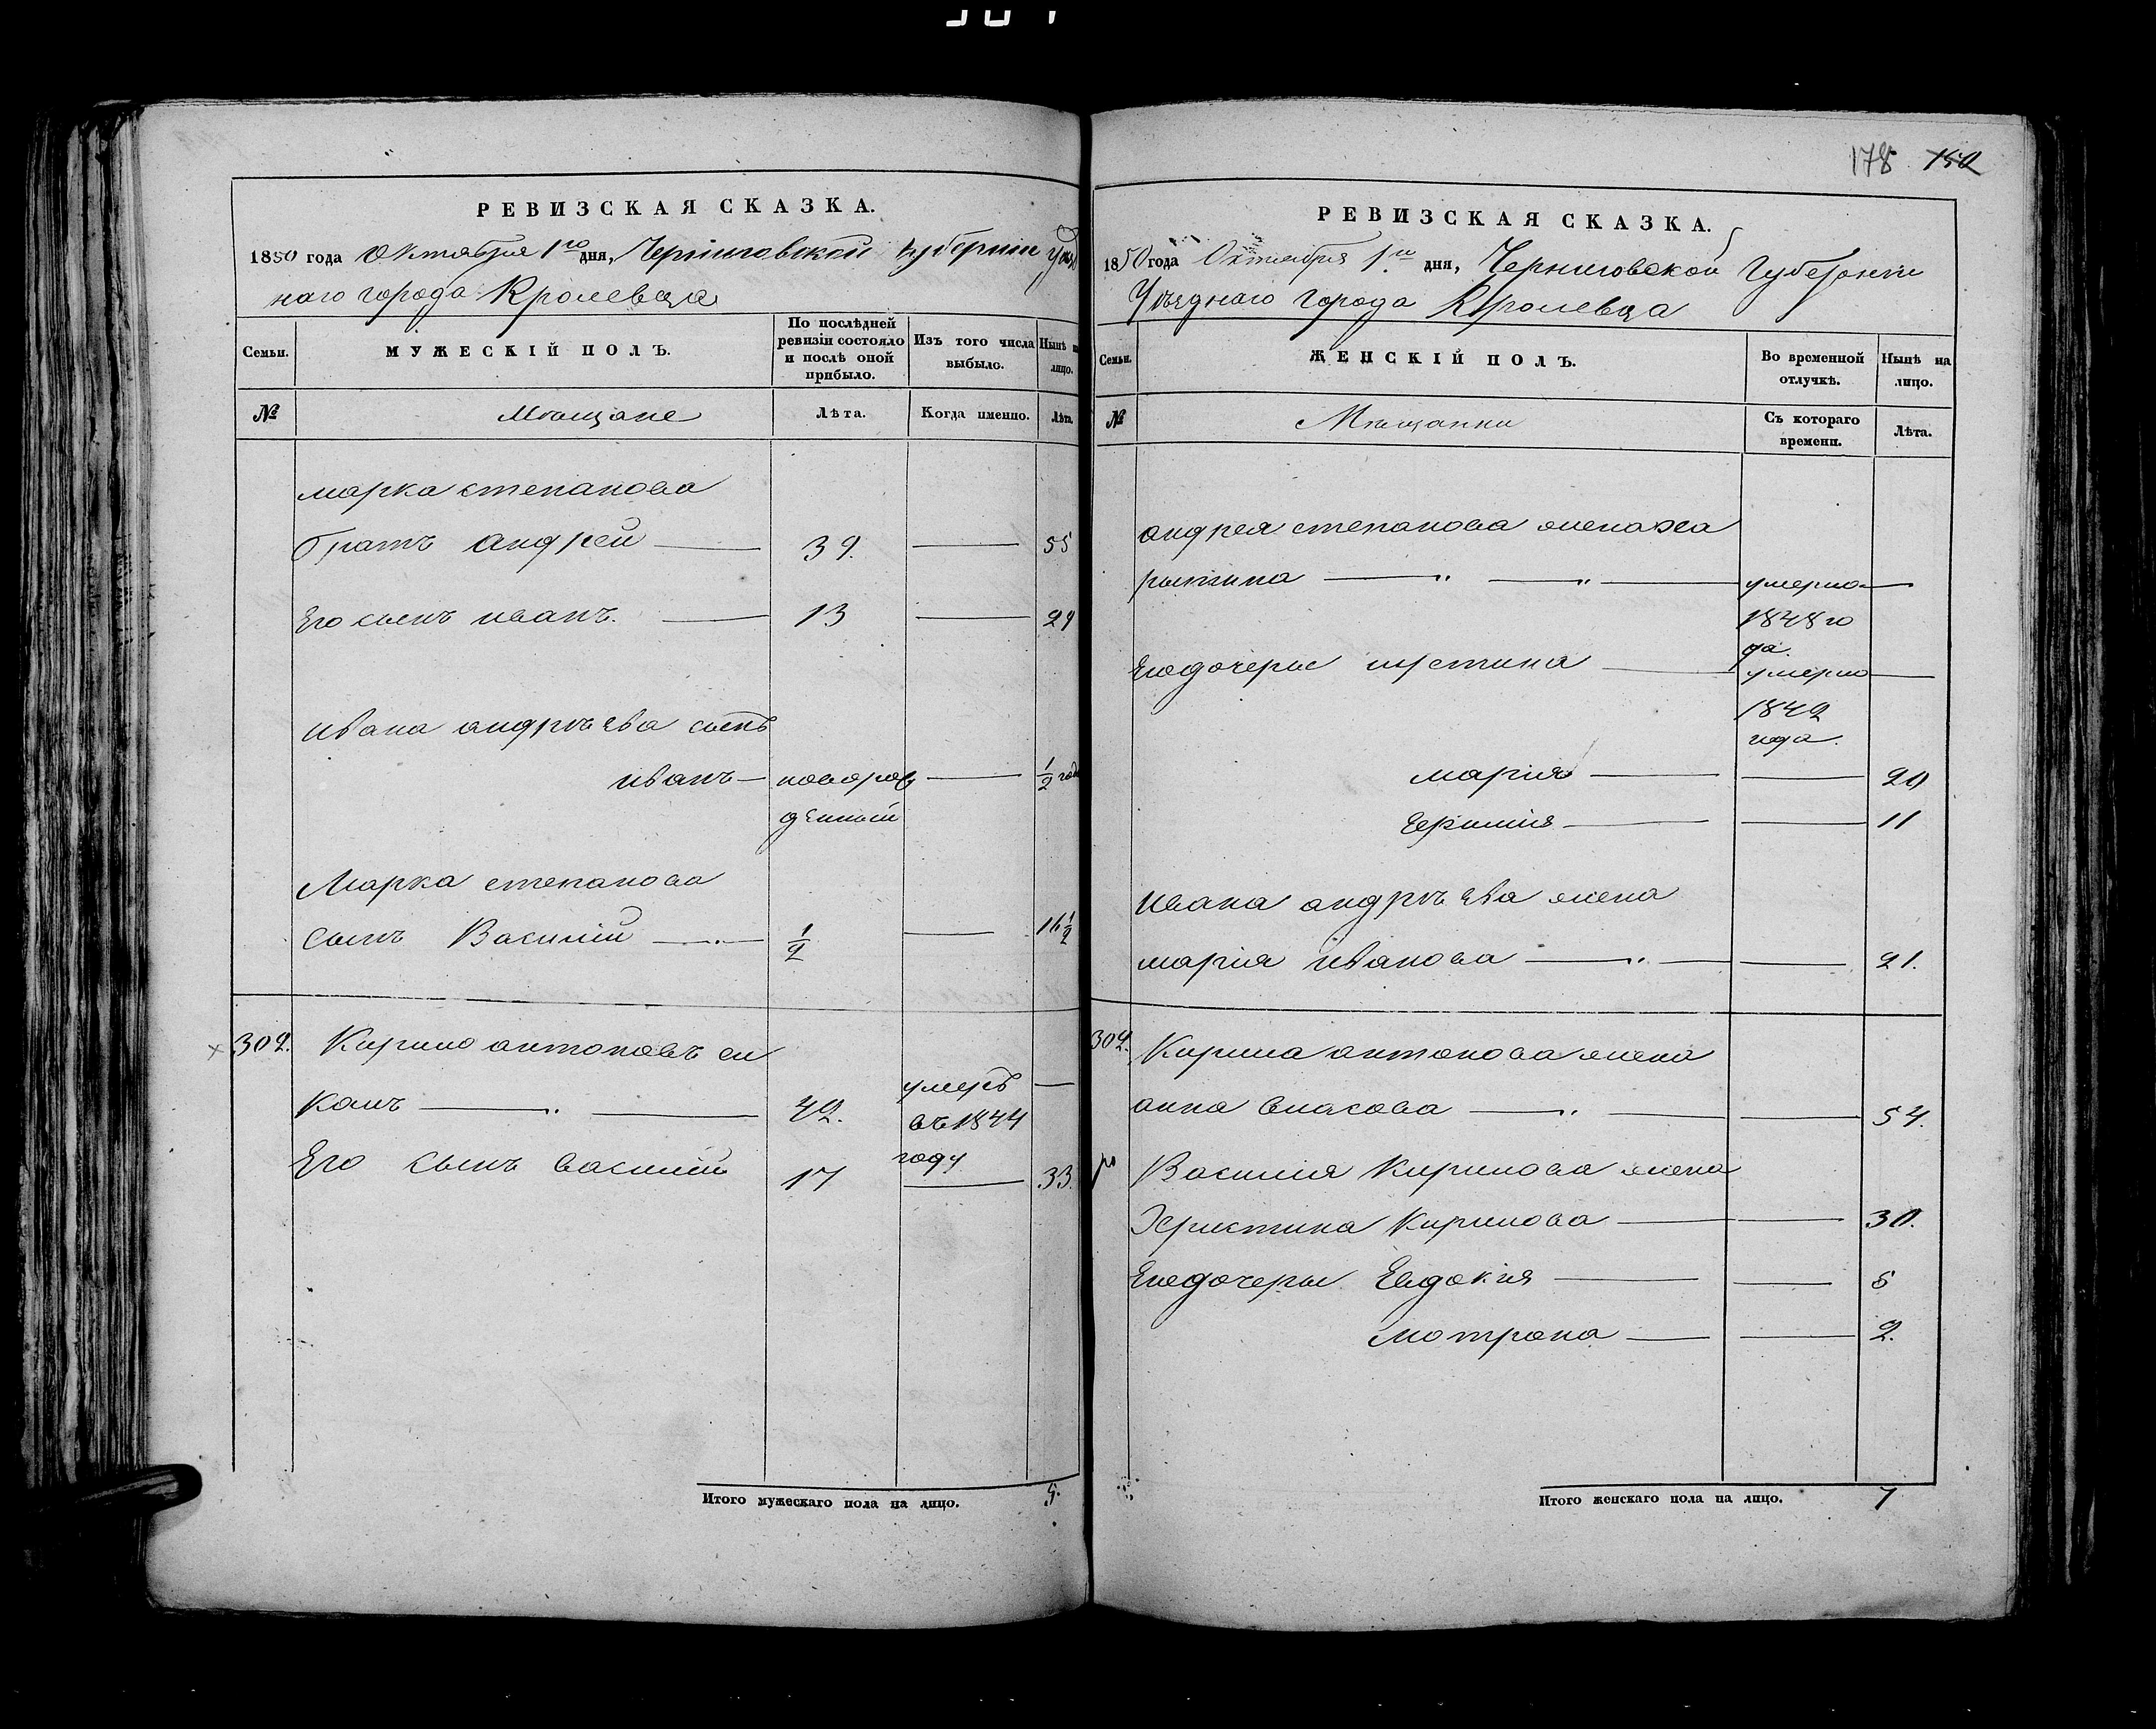 178 150
РЕВИЗСКАЯ СКАЗКА.
1850 года Октября 1го дня, Черниговской губернии уѣзд
наго города Кролевца
Семьи.
МУЖЕСКІЙ ПОЛЪ.
По послѣдней
ревизіи состояло
и послѣ оной
прибыло.
Изъ того числа
выбыло.
Нынѣ н
лицо.
№
Мѣщане
Лѣта.
Когда именно.
Лѣта.
Марка степанова
братъ андрей — 39. — 55
Его сынъ иванъ. — 13 — 29
ивана андрѣева сынъ
иванъ — новорож — 1/2 года
денный
Марка степанова
сынъ Василий — 1/2 — 16 1/2
302. Кирило антоновъ си
канъ — 42. умеръ —
въ 1844
году
Его сынъ василий 17 — 33.
Итого мужескаго пола на лицо. 5.
РЕВИЗСКАЯ СКАЗКА.
1850 года Октября 1го дня, Черниговской Губернии
Уѣзднаго города Кролевца
Семьи.
ЖЕНСКІЙ ПОЛЪ.
Во временной
отлучкѣ.
Нынѣ на
лицо.
№
Мѣщанки
Съ котораго
времени.
Лѣта.
андрея степанова жена ха
ритина — " — " — умерла —
1848 го
да.
Егодочеры иустина — умерла —
1842
года.
мария — — 20
— — 11
ивана андрѣева жена
мария иванова — — 21.
302. Кирила антонова жена
анна власова — — 54.
Василия Кирилова жена
Християна Кирилова — — 30.
Егодочеры Евдокия — — 5
мотрона — — 2.
Итого женскаго пола на лицо. 7